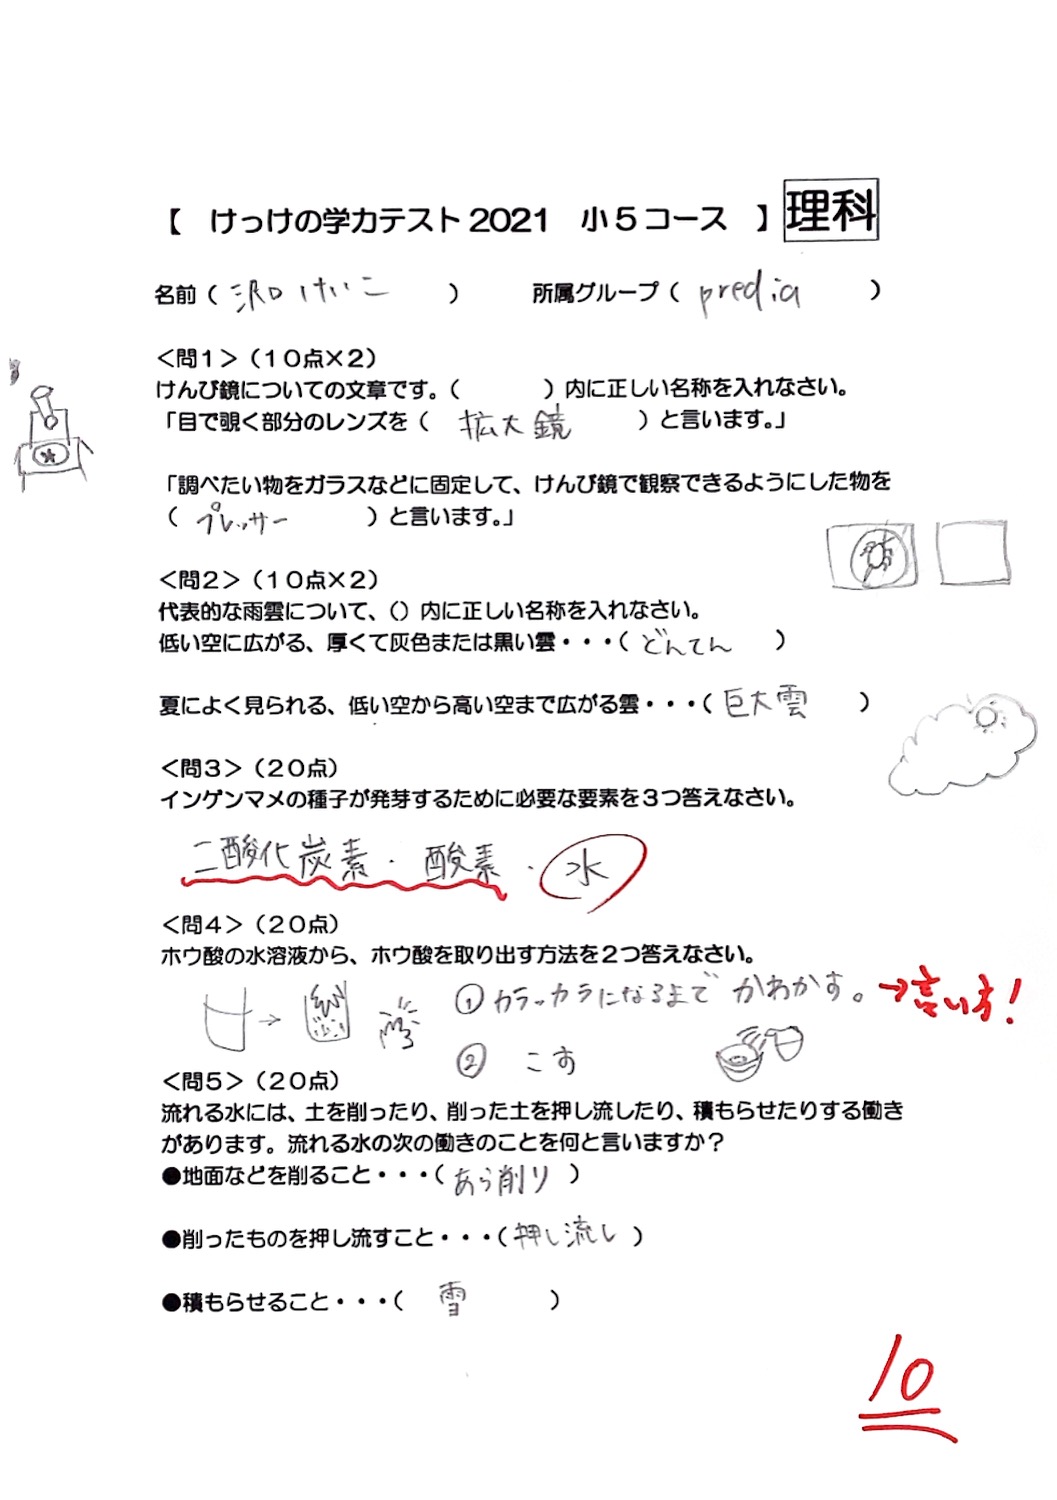 【 けっけの学力テスト2021 小5コース 】 理科
名前( 沢口けいこ ) 所属グループ( predia )
<問1>(10点×2)
けんび鏡についての文章です。( )内に正しい名称を入れなさい。
「目で覗く部分のレンズを( 拡大鏡 )と言います。」
「調べたい物をガラスなどに固定して、けんび鏡で観察できるようにした物を
( プレッサー )と言います。」
<問2>(10点×2)
代表的な雨雲について、()内に正しい名称を入れなさい。
低い空に広がる、厚くて灰色または黒い雲・・・( どんてん )
夏によく見られる、低い空から高い空まで広がる雲・・・( 巨大雲 )
<問3>(20点)
インゲンマメの種子が発芽するために必要な要素を3つ答えなさい。
二酸化炭素・酸素・水
<問4>(20点)
ホウ酸の水溶液から、ホウ酸を取り出す方法を2つ答えなさい。
① カラッカラになるまで かわかす。→言い方!
② こす
<問5>(20点)
流れる水には、土を削ったり、削った土を押し流したり、積もらせたりする働き
があります。流れる水の次の働きのことを何と言いますか?
●地面などを削ること・・・( あら削り )
●削ったものを押し流すこと・・・( 押し流し )
●積もらせること・・・( 雪 )
10